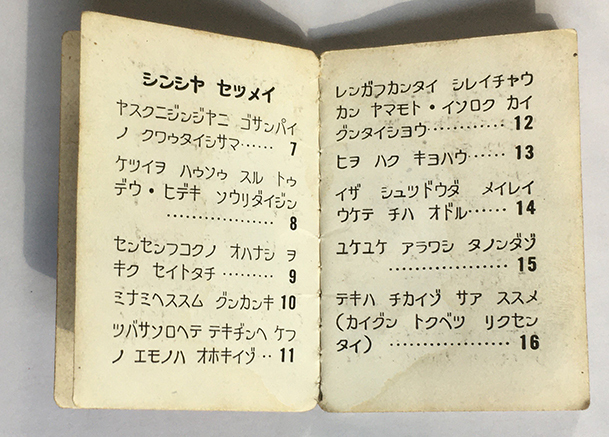 シンシヤ セツメイ
ヤスクニジンジヤニ ゴサンパイ
ノ クワウタイシサマ…… 7
ケツイヲ ハウソウ スル トゥ
デウ・ヒデキ ソウリダイジン
……………… 8
センセンフコクノ オハナシ ヲ
キク セイトタチ ……… 9
ミナミヘススム グンカンキ 10
ツバサソロヘテ テキヂンヘ ケフ
ノ エモノハ オホキイゾ ‥ 11
レンガフカンタイ シレイチャウ
カン ヤマモト・イソロク カイ
グンタイショウ………… 12
ヒヲ ハク キヨハウ…… 13
イザ シュツドウダ メイレイ
ウケテ チハ オドル…… 14
ユケユケ アラワシ タノンダゾ
……………… 15
テキハ チカイゾ サア ススメ
(カイグン トクベツ リクセン
タイ) ……………… 16